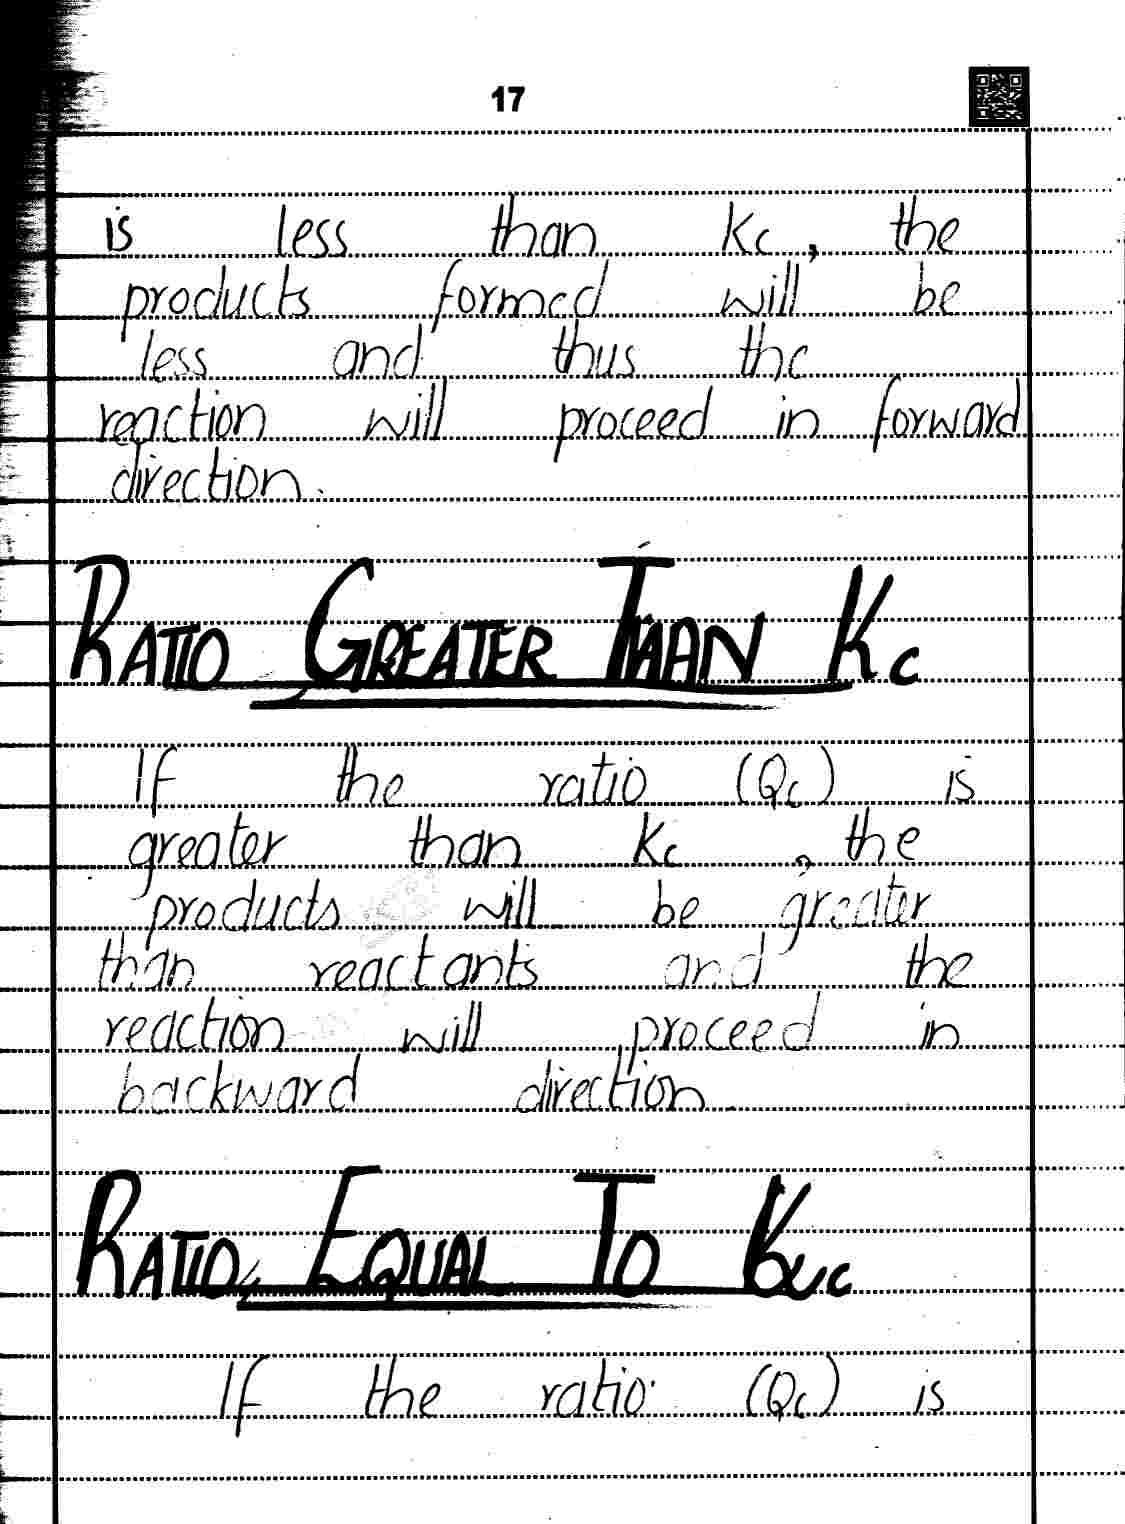 17
is less than Kc, the
products formed will be
less and thus the
reaction will proceed in forward
direction.
RATIO GREATER THAN Kc
If the ratio (Qc) is
greater than Kc, the
products will be greater
than reactants and the
reaction will proceed in
backward direction.
RATIO EQUAL TO Kc
If the ratio (Qc) is